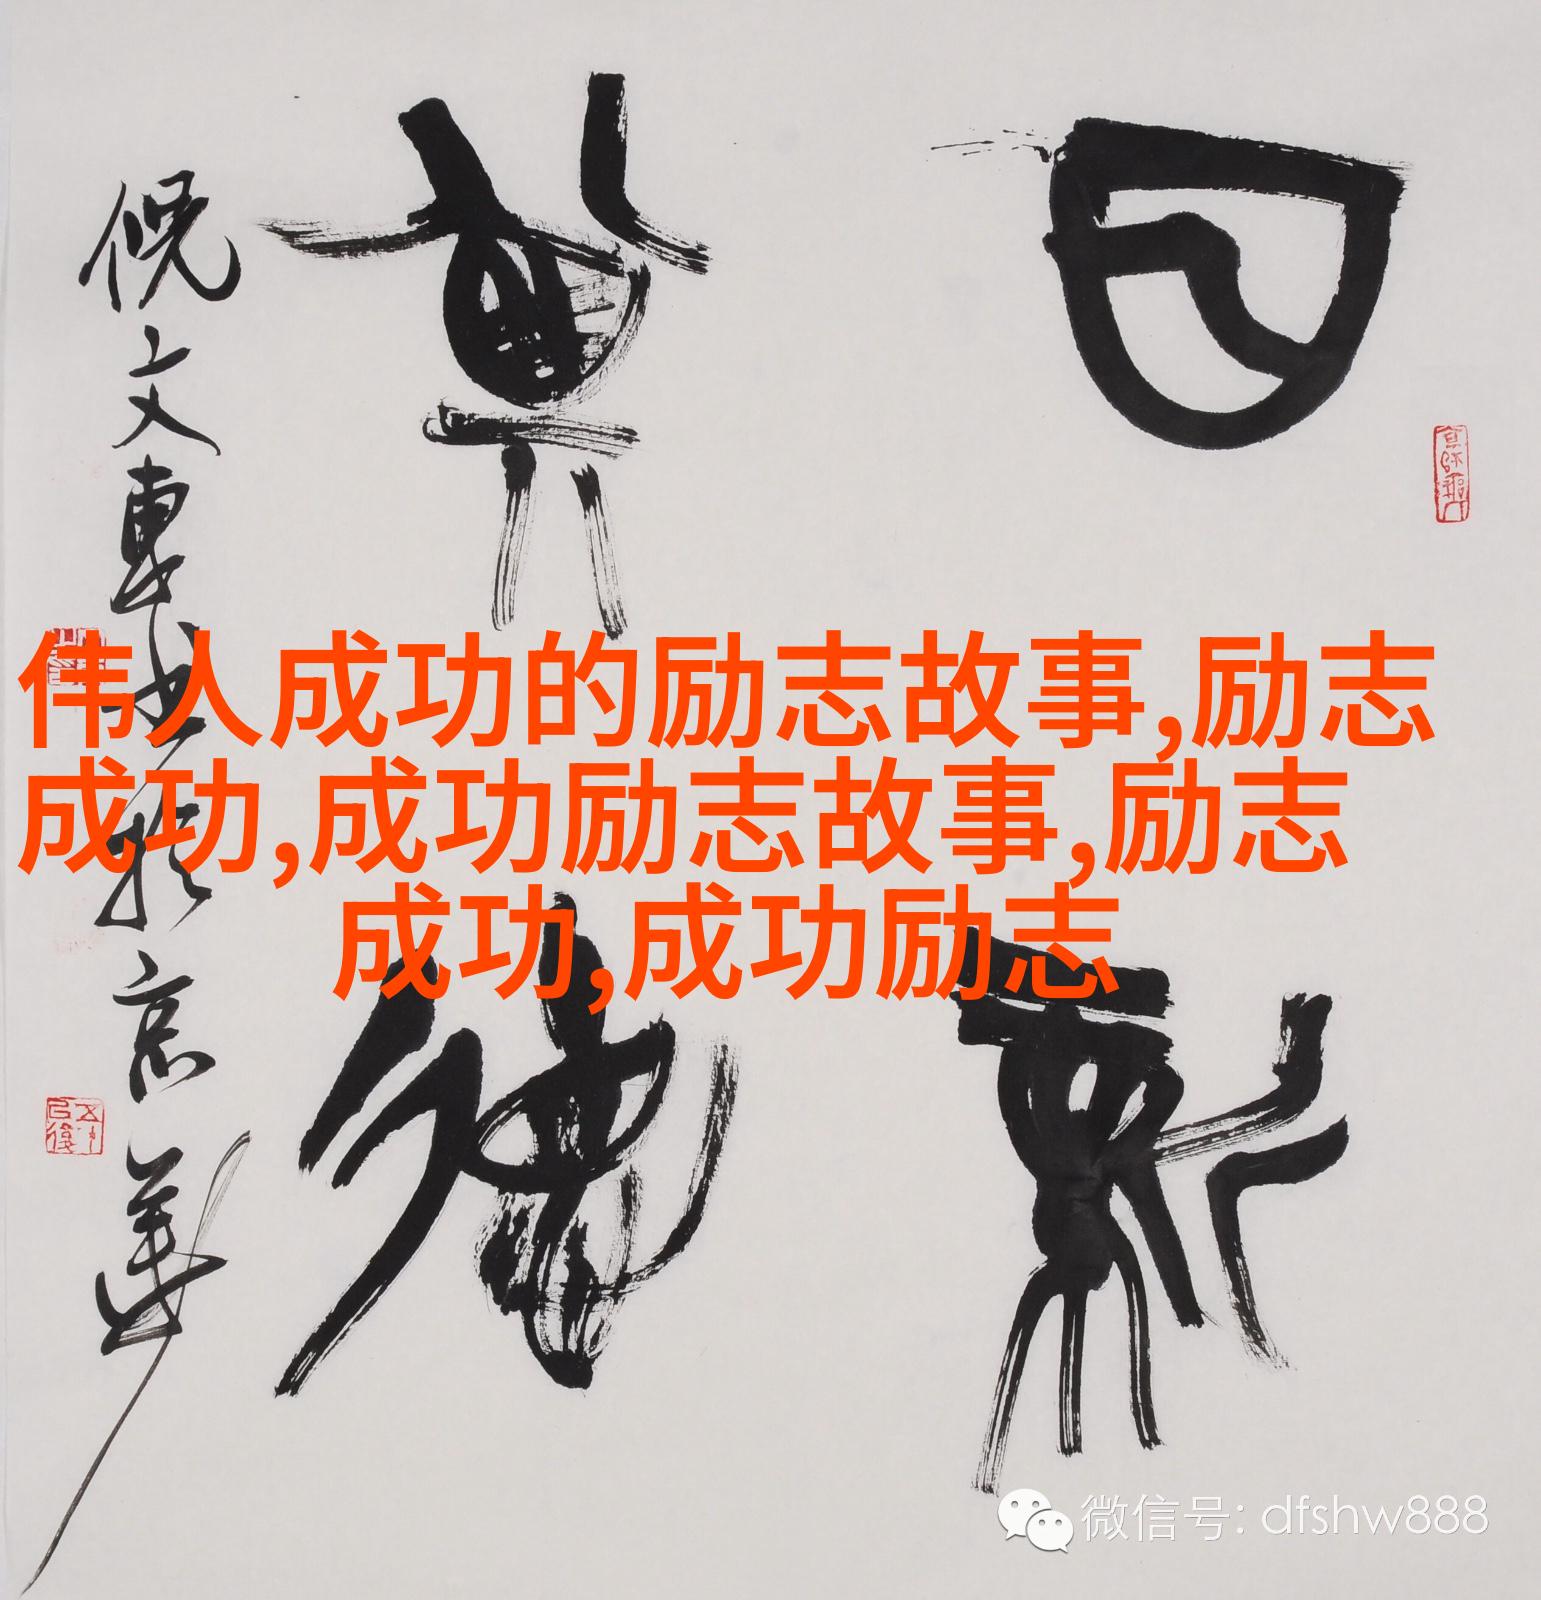 日新
其德
倪文東书於京華
伟人成功的励志故事,励志
成功,成功励志故事,励志
成功,成功励志
微信号: dfshw888